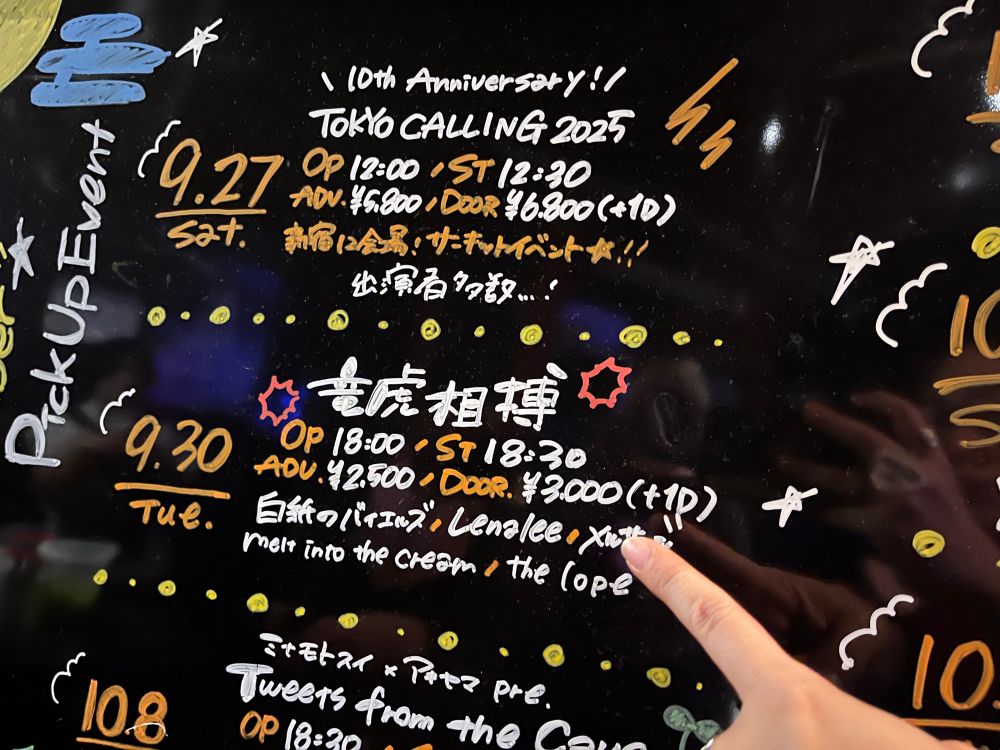 PickUpEvent
\ 10th Anniversary! /
TOKYO CALLING 2025
9.27
Sat.
OP 12:00 / ST 12:30
ADV. ¥5.800 / DOOR ¥6.800 (+1D)
新宿12会場!サーキットイベント☆!!
出演者多数...!
竜虎相搏
9.30
Tue.
OP 18:00 / ST 18:30
ADV. ¥2.500 / DOOR. ¥3.000 (+1D)
白紙のバイエルズ / Lenalee /
melt into the cream / the lope
ミナモトスイ × アキヤマ pre.
Tweets from the Cave
10.8
OP 18:30